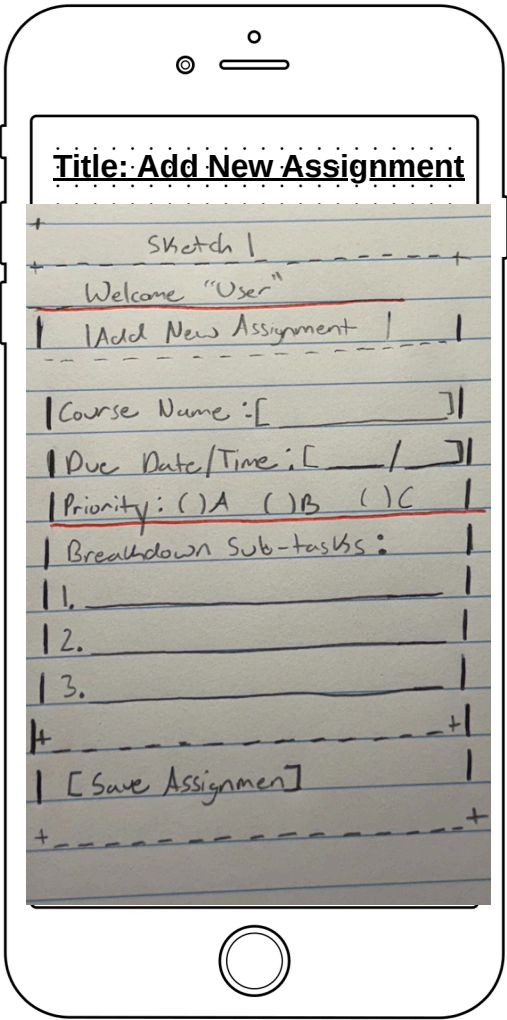 Title: Add New Assignment
Sketch 1
Welcome "User"
|Add New Assignment |
Course Name:[ ________ ]
Due Date/Time:[ ___/___ ]
Priority: ( )A ( )B ( )C
Breakdown Sub-tasks:
1. ________
2. ________
3. ________
[Save Assignmen]